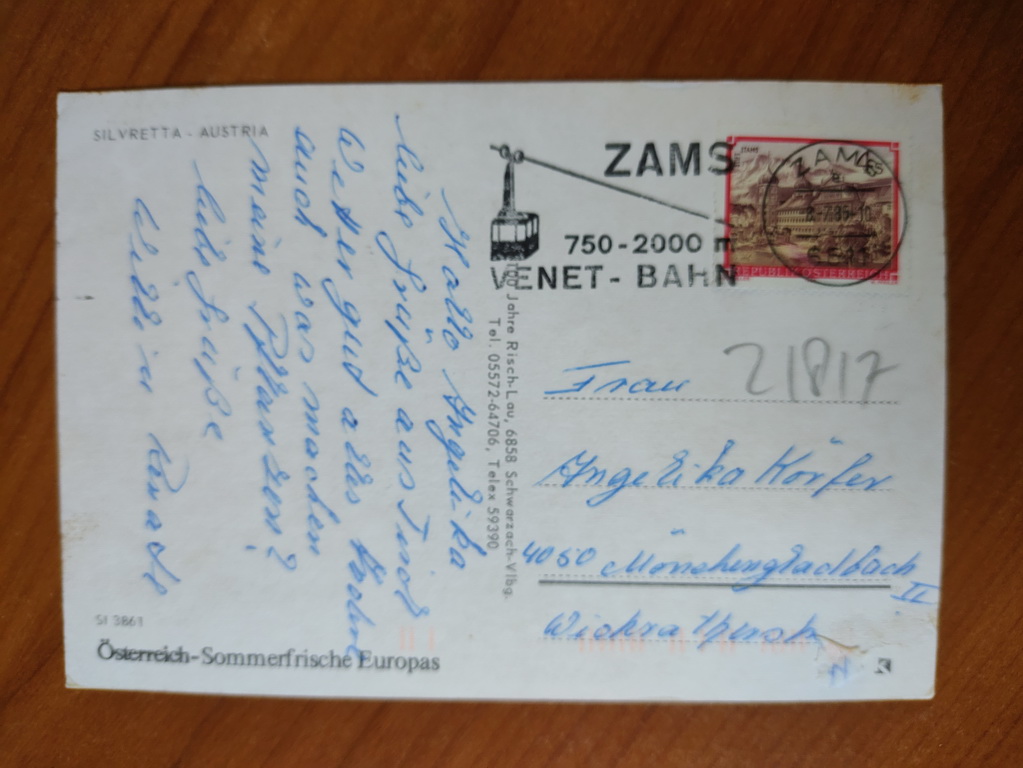 SILVRETTA - AUSTRIA
Hallo Angelika
liebe Grüße aus Tirol
Wetter gut alles
auch was machen
meine Pflanzen?
liebe Grüße
Willi u Renate
SI 3861
Österreich-Sommerfrische Europas
100 Jahre Risch-Lau, 6858 Schwarzach-Vlbg.
Tel. 05572-64706, Telex 59390
ZAMS
750-2000 m
VENET-BAHN
ZAMS
8.-7.85-10
REPUBLIK ÖSTERREICH
21817
Frau
Angelika Körfer
4050 Mönchengladbach
II